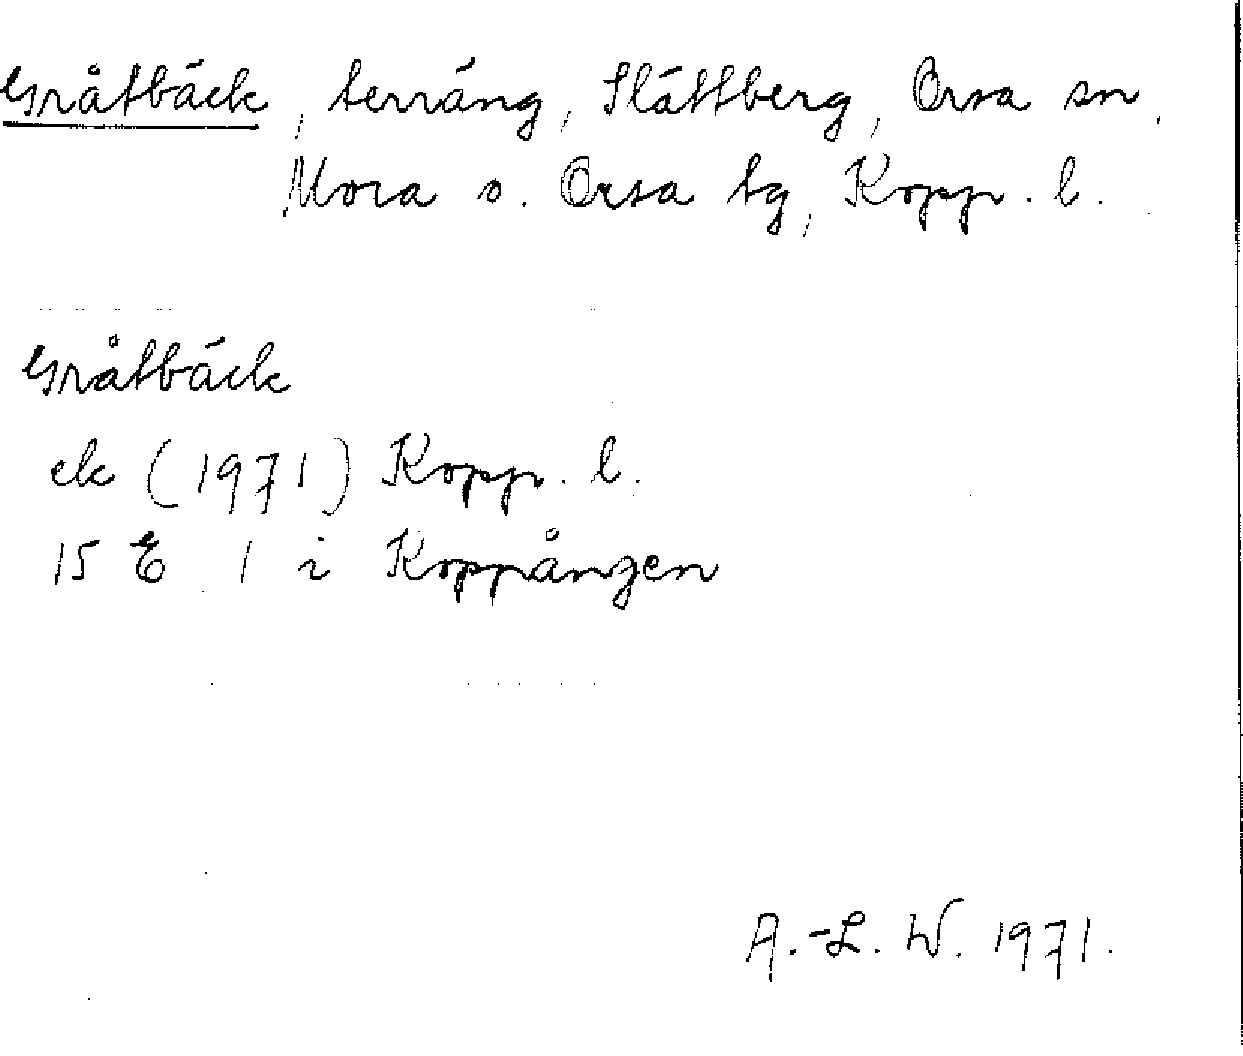 Gråtbäck, terräng, Slättberg, Orsa sn,
Mora o. Orsa tg, Kopp. l.
Gråtbäck
ek (1971) Kopp. l.
15 E 1 i Koppången
A.-L. W. 1971.